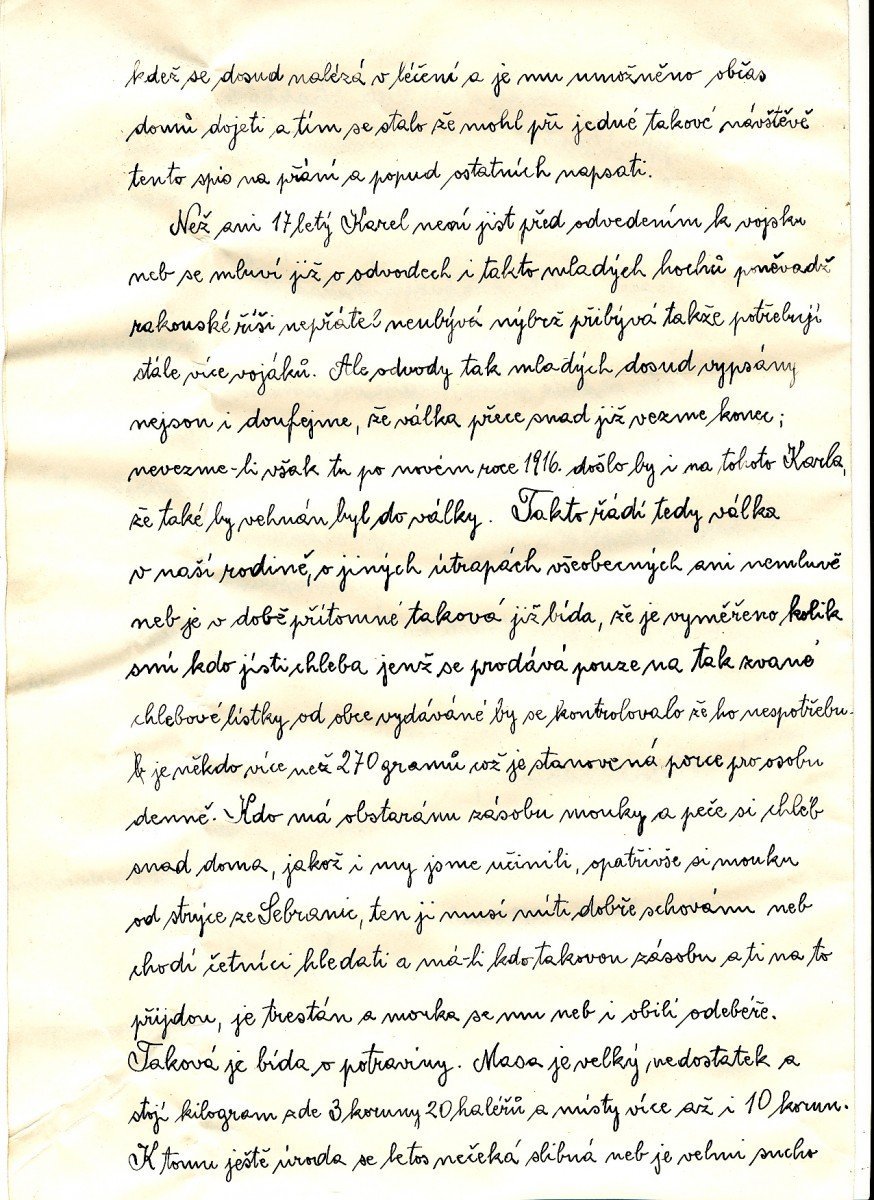 kdež se dosud nalézá v léčení a je mu umožněno občas
domů dojeti a tím se stalo že mohl při jedné takové návštěvě
tento spis na přání a popud ostatních napsati.
Než ani 17 letý Karel není jist před odvedením k vojsku
neb se mluví již o odvodech i takto mladých hochů poněvadž
rakouské říši nepřátel neubývá nýbrž přibývá takže potřebují
stále více vojáků. Ale odvody tak mladých dosud vypsány
nejsou i doufejme, že válka přece snad již vezme konec;
nevezme-li však tu po novém roce 1916. došlo by i na tohoto Karla,
že také by vehnán byl do války. Takto řádí tedy válka
v naší rodině, o jiných útrapách všeobecných ani nemluvě
neb je v době přítomné taková již bída, že je vyměřeno kolik
smí kdo jísti chleba jenž se prodává pouze na tak zvané
chlebové lístky od obce vydáváné by se kontrolovalo že ho nespotřebu-
je někdo více než 270 gramů což je stanovená porce pro osobu
denně. Kdo má obstaránu zásobu mouky a peče si chléb
snad doma, jakož i my jsme učinili, opatřivše si mouku
od strýce ze Sebranic, ten ji musí míti dobře schovánu neb
chodí četníci hledati a má-li kdo takovou zásobu a ti na to
přijdou, je trestán a mouka se mu neb i obilí odebéře.
Taková je bída o potraviny. Masa je velký nedostatek a
stojí kilogram zde 3 koruny 20 haléřů a místy více až i 10 korun.
K tomu ještě úroda se letos nečeká slibná neb je velmi sucho